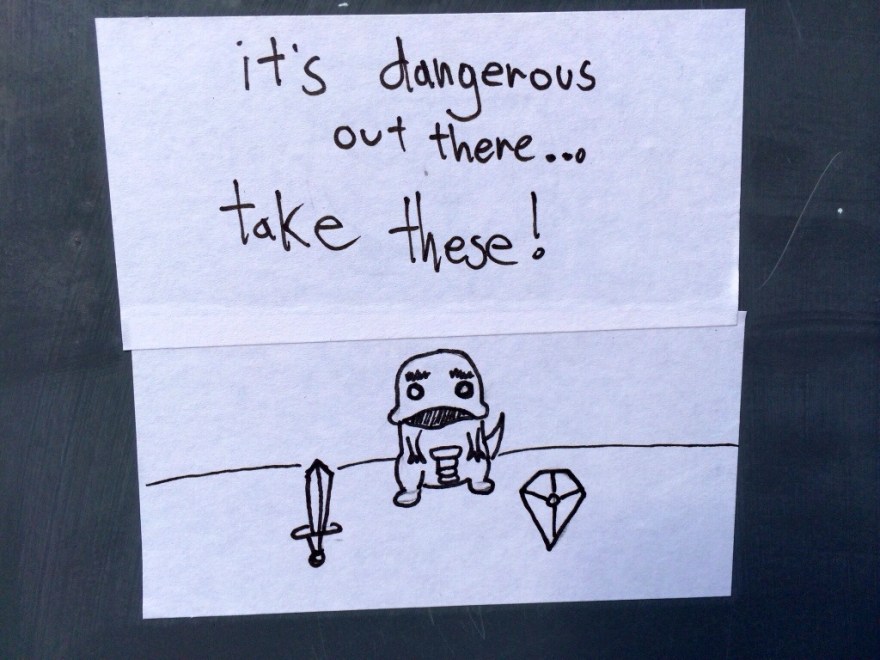 it's dangerous
out there...
take these!